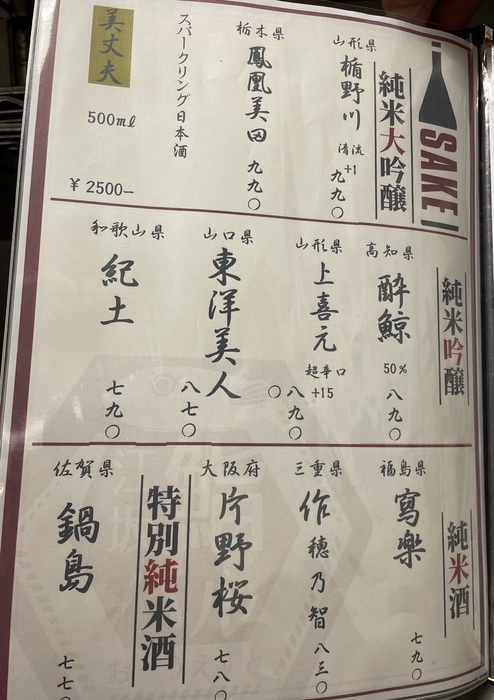 SAKE
純米大吟醸
山形県
楯野川
清流
+1
九九〇
栃木県
鳳凰美田
九九〇
スパークリング日本酒
美丈夫
500ml
¥2500-
純米吟醸
高知県
酔鯨
50%
八九〇
山形県
上喜元
超辛口
+15
八九〇
山口県
東洋美人
八七〇
和歌山県
紀土
七九〇
純米酒
福島県
寫楽
七九〇
三重県
作
穂乃智
八三〇
大阪府
片野桜
七八〇
特別純米酒
佐賀県
鍋島
七七〇